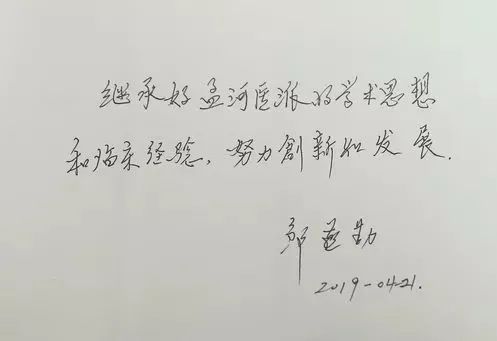 继承好孟河医派的学术思想
和临床经验，努力創新和发展.
邹燕勤
2019-04-21.